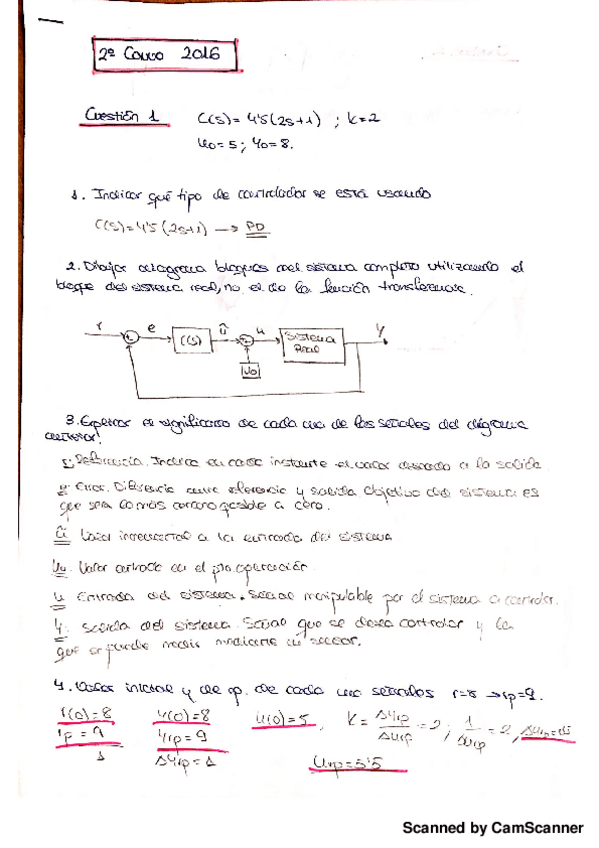 2º Control 2016
Cuestión 1 C(s)= 4'5(2s+1) ; K=2
U0=5; Y0=8.
1. Indicar qué tipo de controlador se está usando
C(s)=4'5(2s+1) → PD
2. Dibujar diagrama bloques del sistema completo utilizando el
bloque del sistema real, no el de la función transferencia.
r e C(s) û u Sistema Real y
U0
3. Explicar el significado de cada una de las señales del diagrama
anterior:
r: Referencia. Indica en cada instante el valor deseado a la salida
e: Error. Diferencia entre referencia y salida. Objetivo del sistema es
que sea lo más cercano posible a cero.
û Valor incremental a la entrada del sistema
U0. Valor entrada en el pto operación.
u Entrada del sistema. Señal manipulable por el sistema a controlar.
y. Salida del sistema. Señal que se desea controlar y la
que se puede medir mediante un sensor.
4. Valor inicial y de rp. de cada una señales r=8 → rp=9.
r(0)=8 y(0)=8 u(0)=5, K= ΔYrp/ΔUrp =2; 1/ΔUrp = 2,
rp = 9 Yrp = 9
1 ΔYrp = 1 Urp=5'5
Scanned by CamScanner